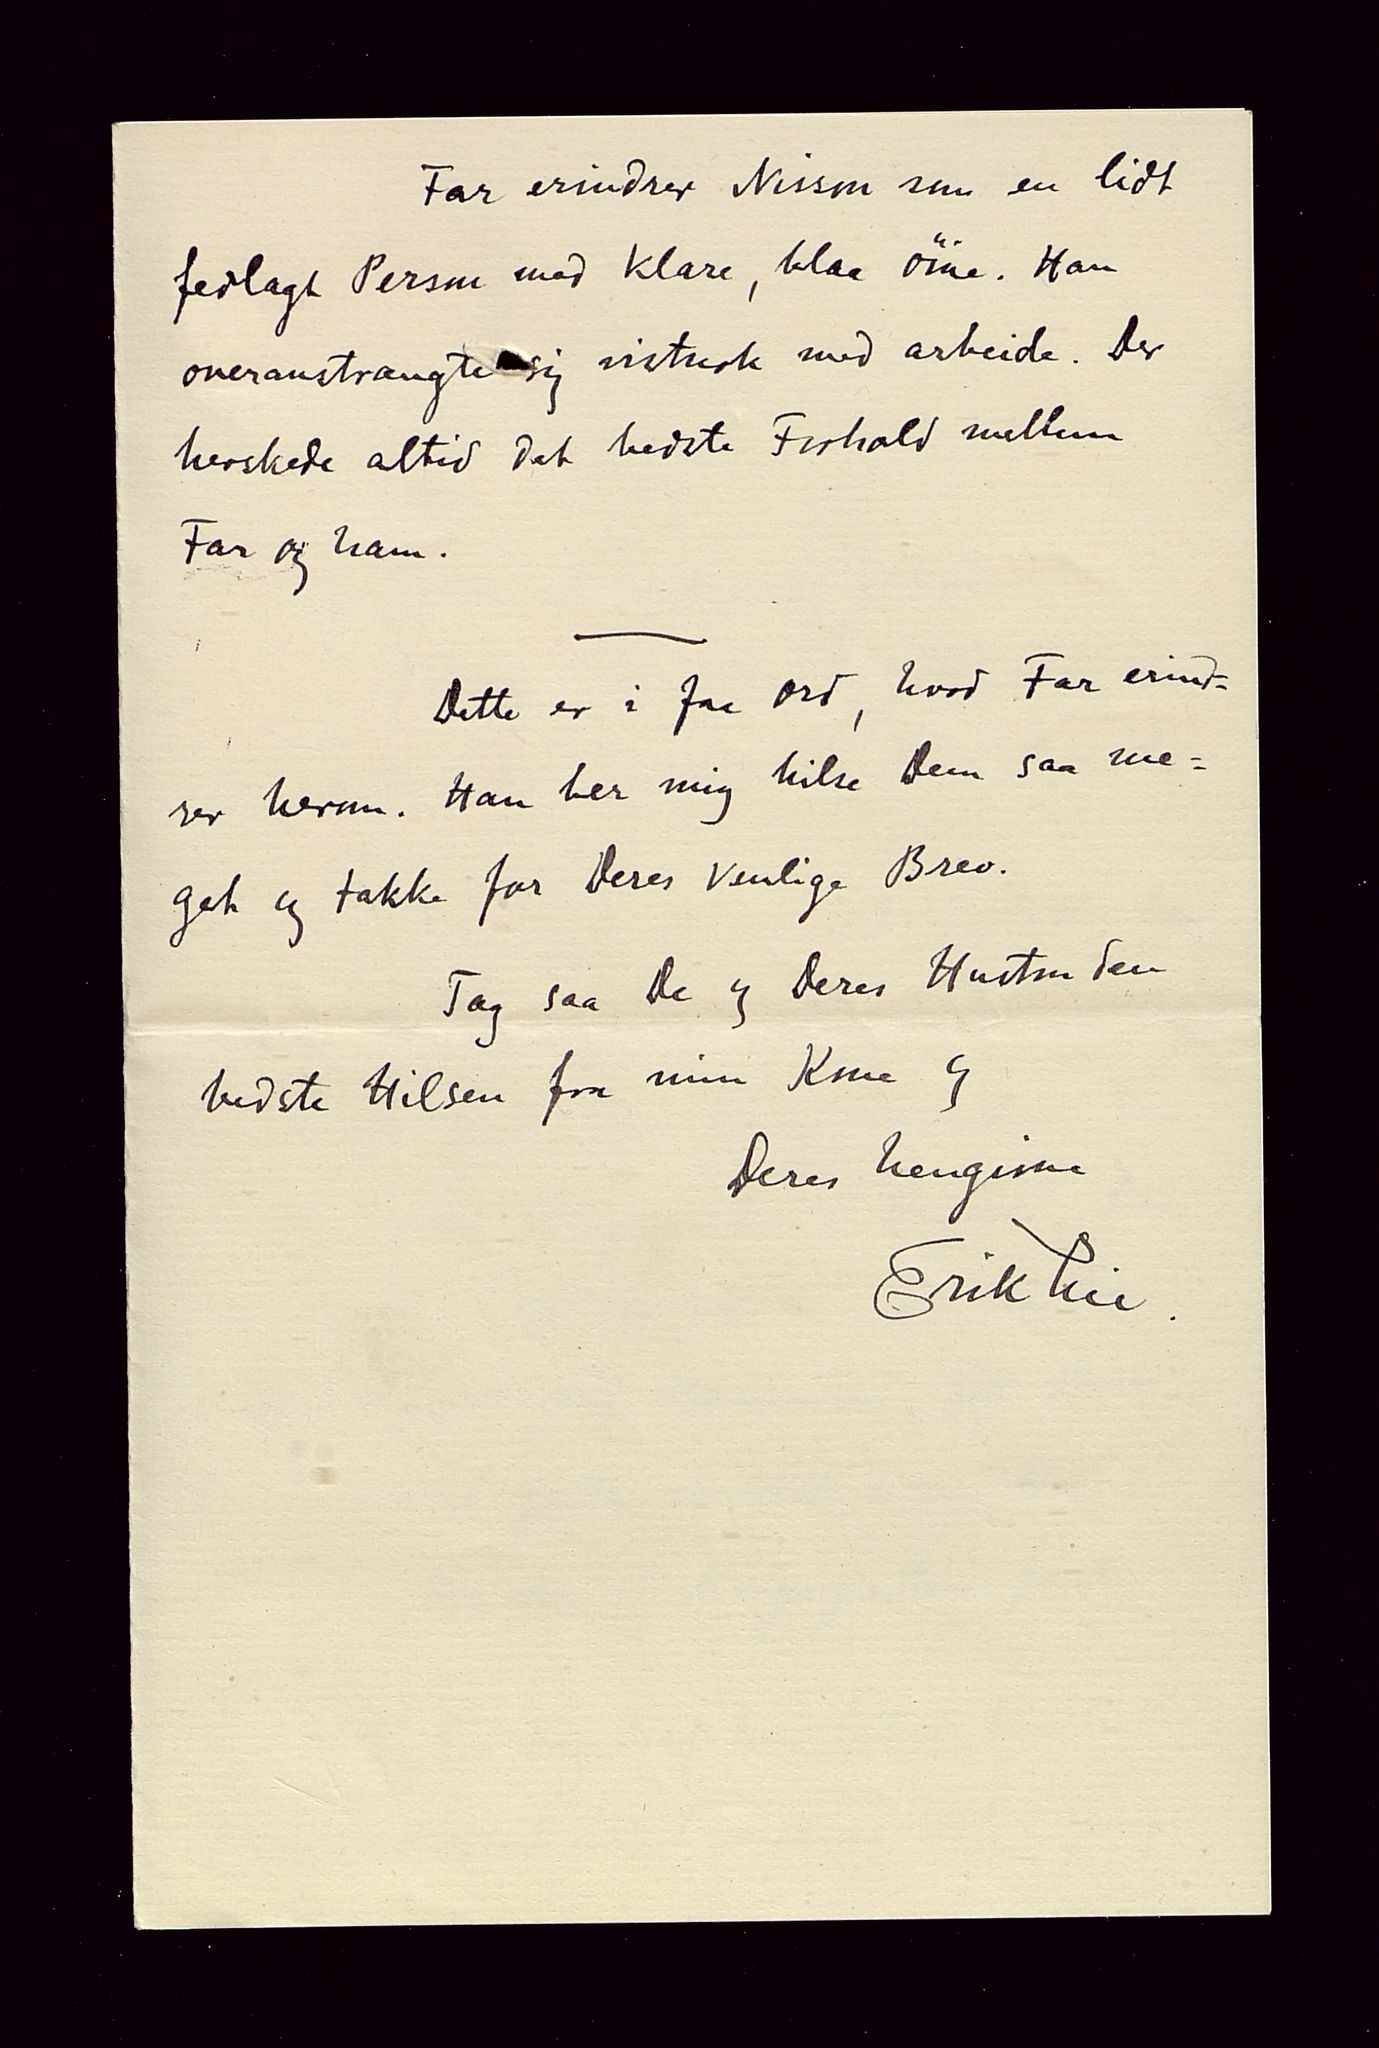 Far erindrer Nisson som en lidt
fedlagt Person med klare, blaa öine. Han
overanstrængte sig vistnok med arbeide. Der
herskede altid det bedste Forhold mellem
Far og ham.
Dette er i faa Ord, hvad Far erind=
rer herom. Han ber mig hilse Dem saa me=
get og takke for Deres venlige Brev.
Tag saa De og Deres Hustru den
bedste Hilsen fra min Kone og
Deres hengivne
Erik Lie.